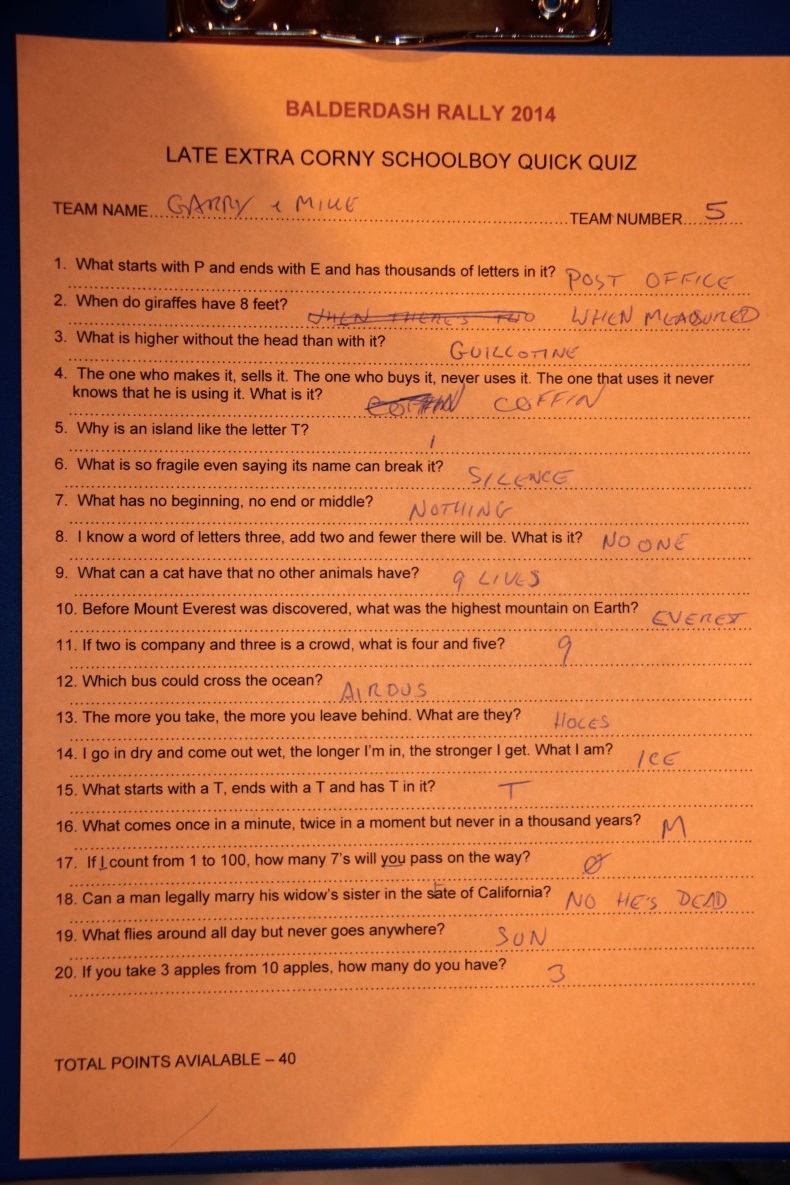 BALDERDASH RALLY 2014
LATE EXTRA CORNY SCHOOLBOY QUICK QUIZ
TEAM NAME GARRY & MIKE TEAM NUMBER 5
1. What starts with P and ends with E and has thousands of letters in it? POST OFFICE
2. When do giraffes have 8 feet? WHEN THERE'S TWO WHEN MEASURED
3. What is higher without the head than with it? GUILLOTINE
4. The one who makes it, sells it. The one who buys it, never uses it. The one that uses it never
knows that he is using it. What is it? COFFIN COFFIN
5. Why is an island like the letter T?
6. What is so fragile even saying its name can break it? SILENCE
7. What has no beginning, no end or middle? NOTHING
8. I know a word of letters three, add two and fewer there will be. What is it? NO ONE
9. What can a cat have that no other animals have? 9 LIVES
10. Before Mount Everest was discovered, what was the highest mountain on Earth? EVEREST
11. If two is company and three is a crowd, what is four and five? 9
12. Which bus could cross the ocean? AIRBUS
13. The more you take, the more you leave behind. What are they? HOLES
14. I go in dry and come out wet, the longer I'm in, the stronger I get. What I am? ICE
15. What starts with a T, ends with a T and has T in it? T
16. What comes once in a minute, twice in a moment but never in a thousand years? M
17. If I count from 1 to 100, how many 7's will you pass on the way? Ø
18. Can a man legally marry his widow's sister in the state of California? NO HE'S DEAD
19. What flies around all day but never goes anywhere? SUN
20. If you take 3 apples from 10 apples, how many do you have? 3
TOTAL POINTS AVIALABLE – 40